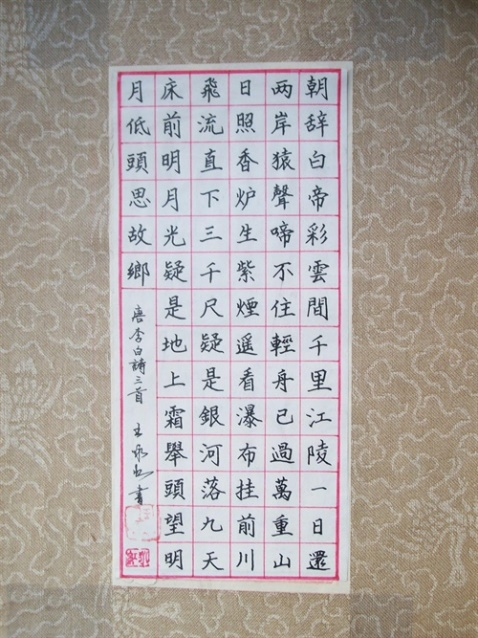 朝辞白帝彩雲間千里江陵一日還
两岸猿聲啼不住輕舟已過萬重山
日照香炉生紫煙遥看瀑布挂前川
飛流直下三千尺疑是銀河落九天
床前明月光疑是地上霜舉頭望明
月低頭思故鄉
唐李白詩三首